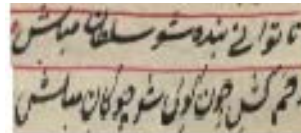 تا توانی بنده شو سلطان مباش
زخم کش چون گوی شو چوگان مباش